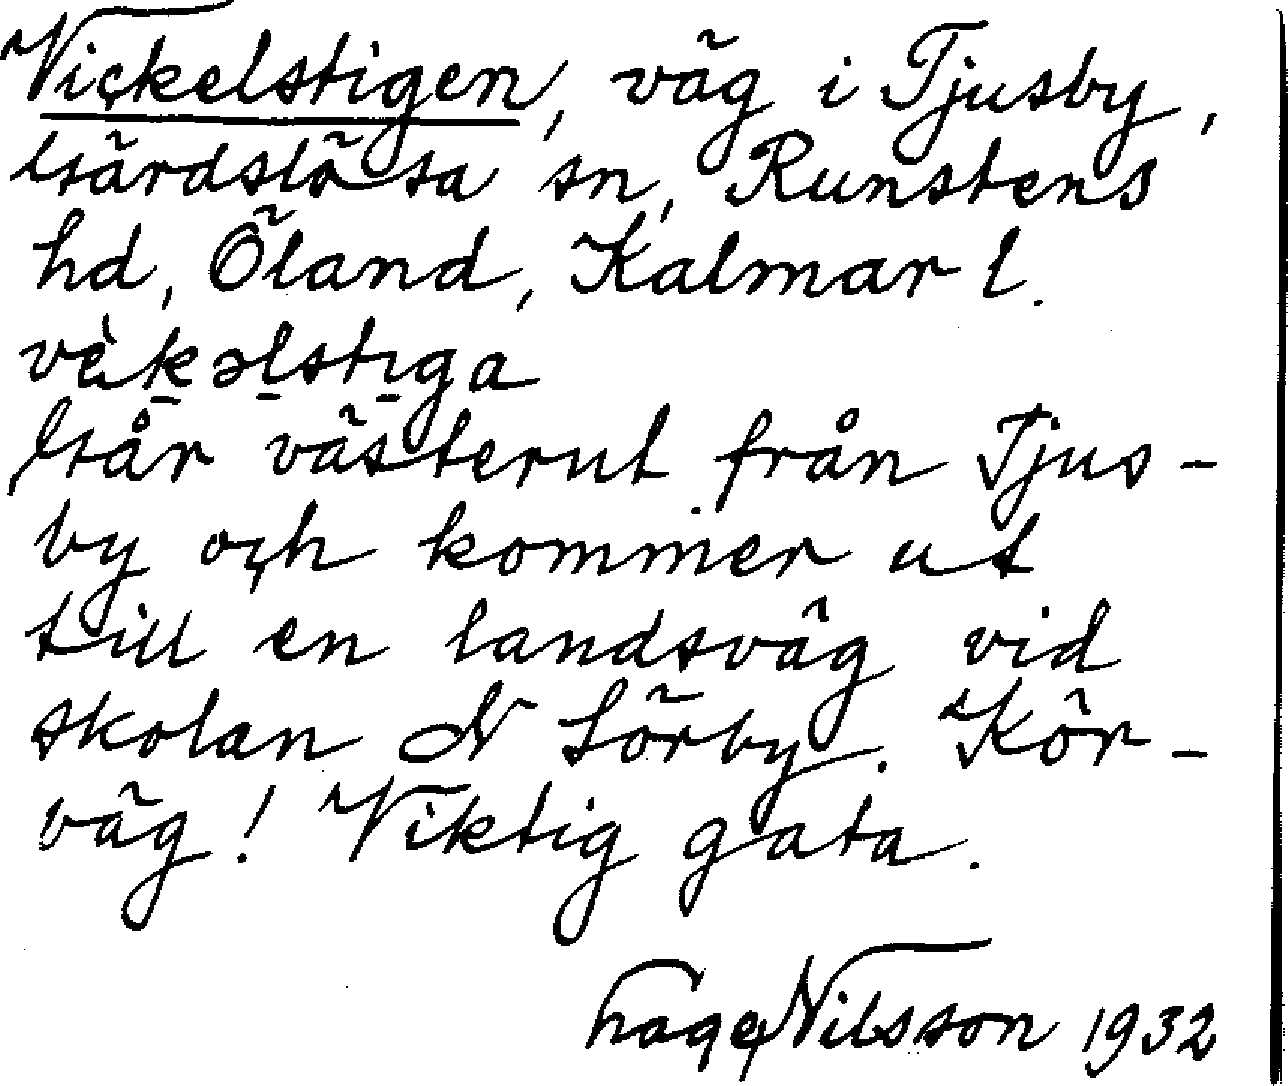 Vickelstigen, väg i Tjusby,
Gärdslösa sn, Runstens
hd, Öland, Kalmar l.
vèkəlstıga
Går västerut från Tjus-
by och kommer ut
till en landsväg vid
skolan N Sörby. Kör-
väg! Viktig gata.
Nilsson 1932